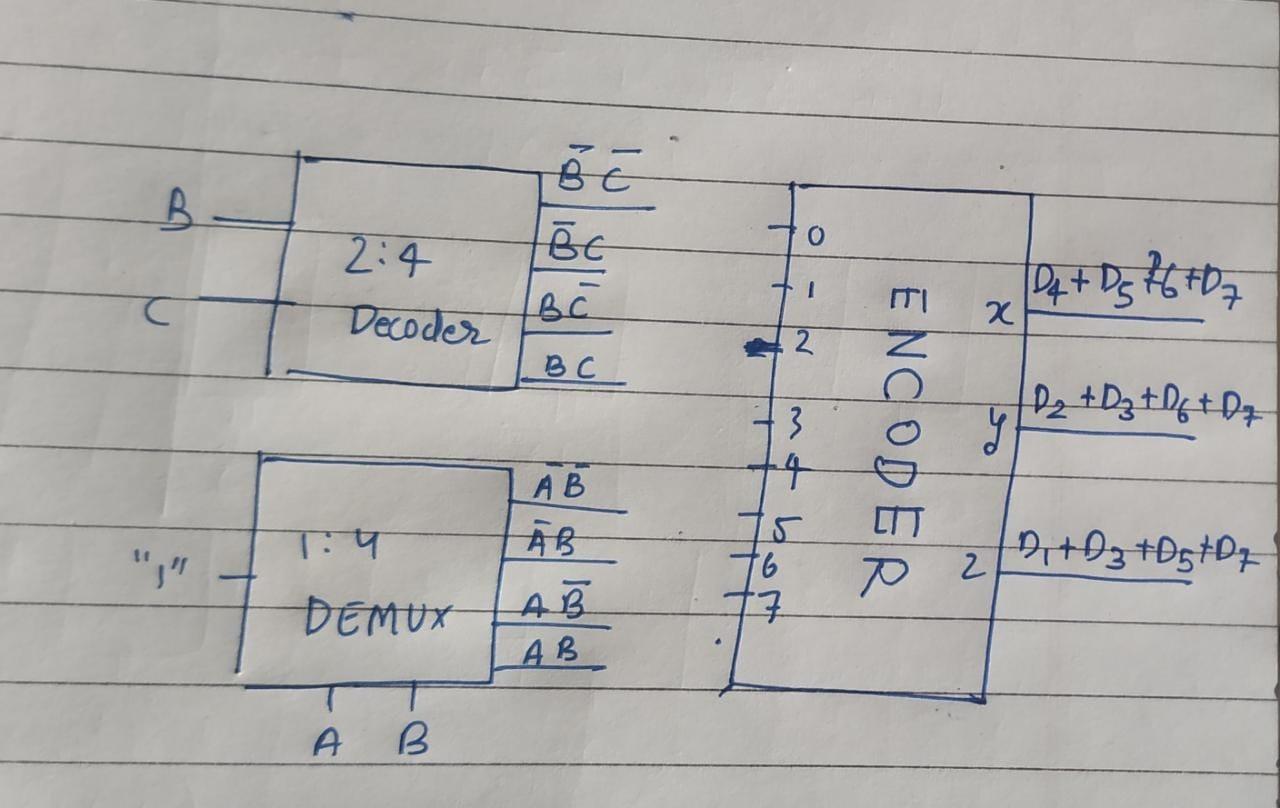 B
C
2:4
Decoder
B̅ C̅
B̅C
BC̅
BC
"1"
1:4
DEMUX
A̅ B̅
A̅B
A B̅
A B
A B
0
1
2
3
4
5
6
7
ENCODER
x
D₄ + D₅ + D₆ + D₇
y
D₂ + D₃ + D₆ + D₇
z
D₁ + D₃ + D₅ + D₇